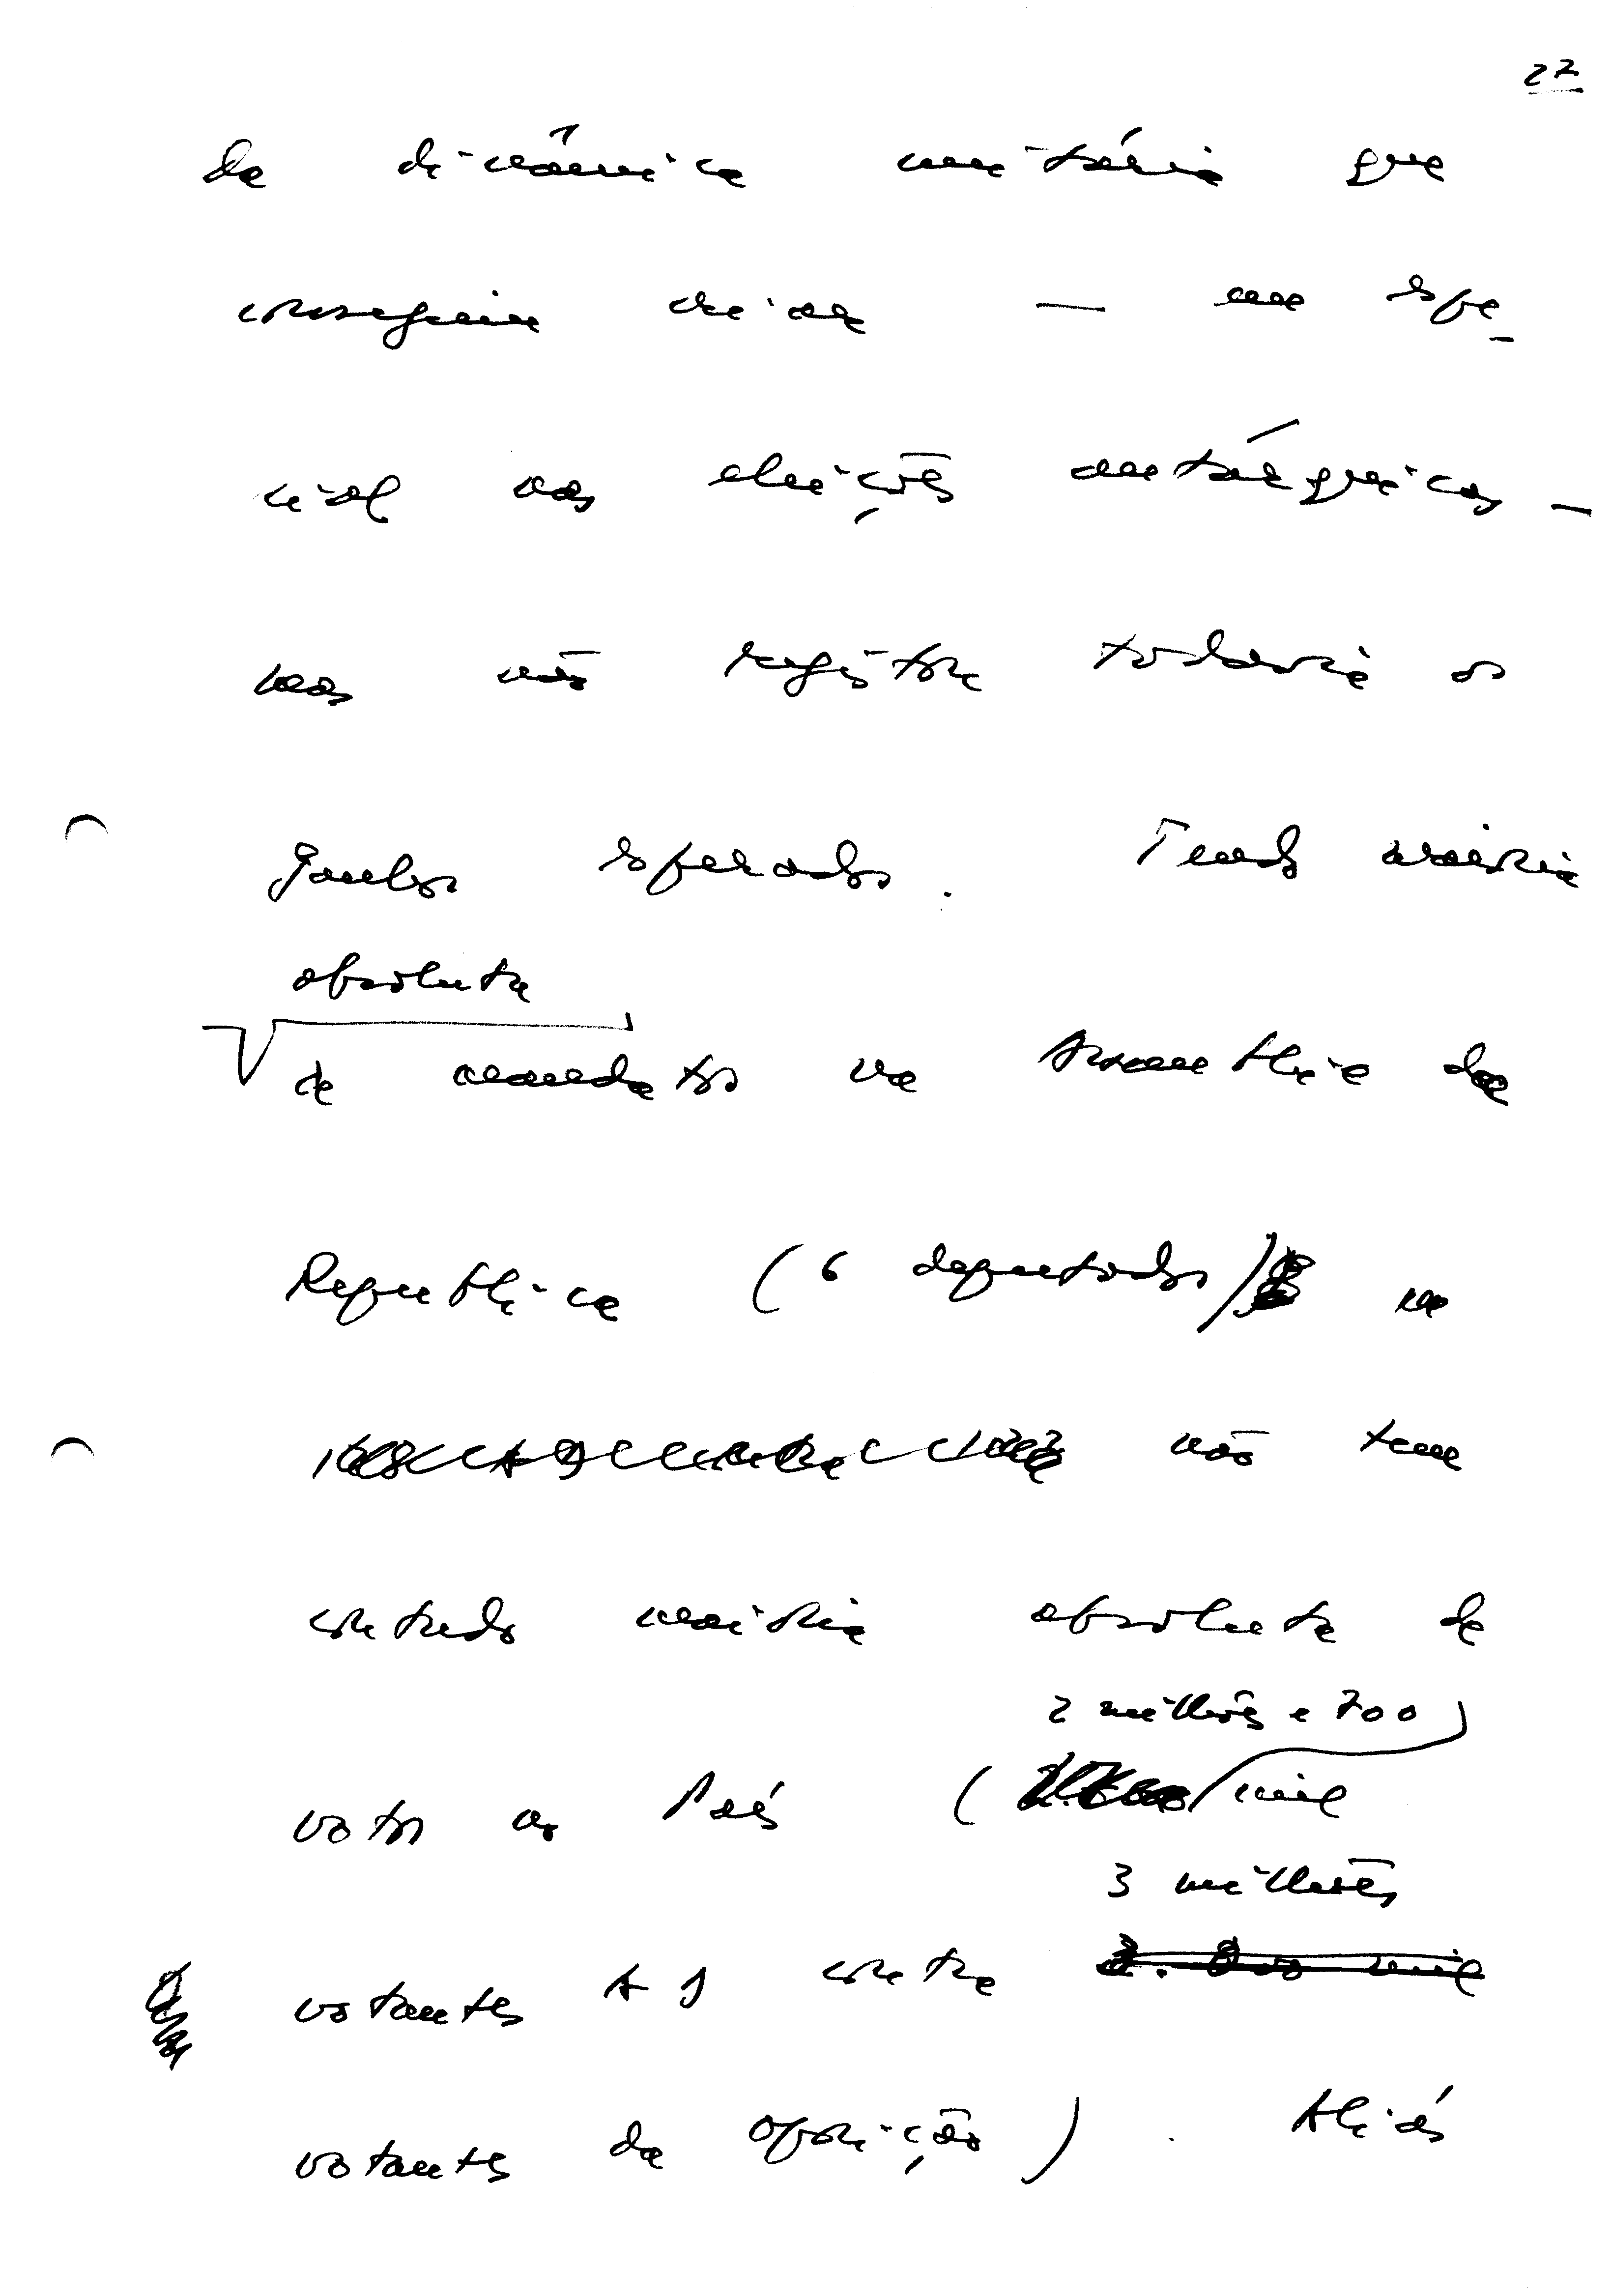 27
da dinâmica unitária que
conseguiu criar — em espe-
cial nas eleições autárquicas —
mas não registou todavia os
ganhos esperados. Tendo maioria
absoluta
de mandatos na Assembleia da
República (6 deputados) na
não tem
contudo maioria absoluta de
2 milhões e 700
votos no País ( mil
3 milhões
votantes AD contra
votantes da oposição). Aliás